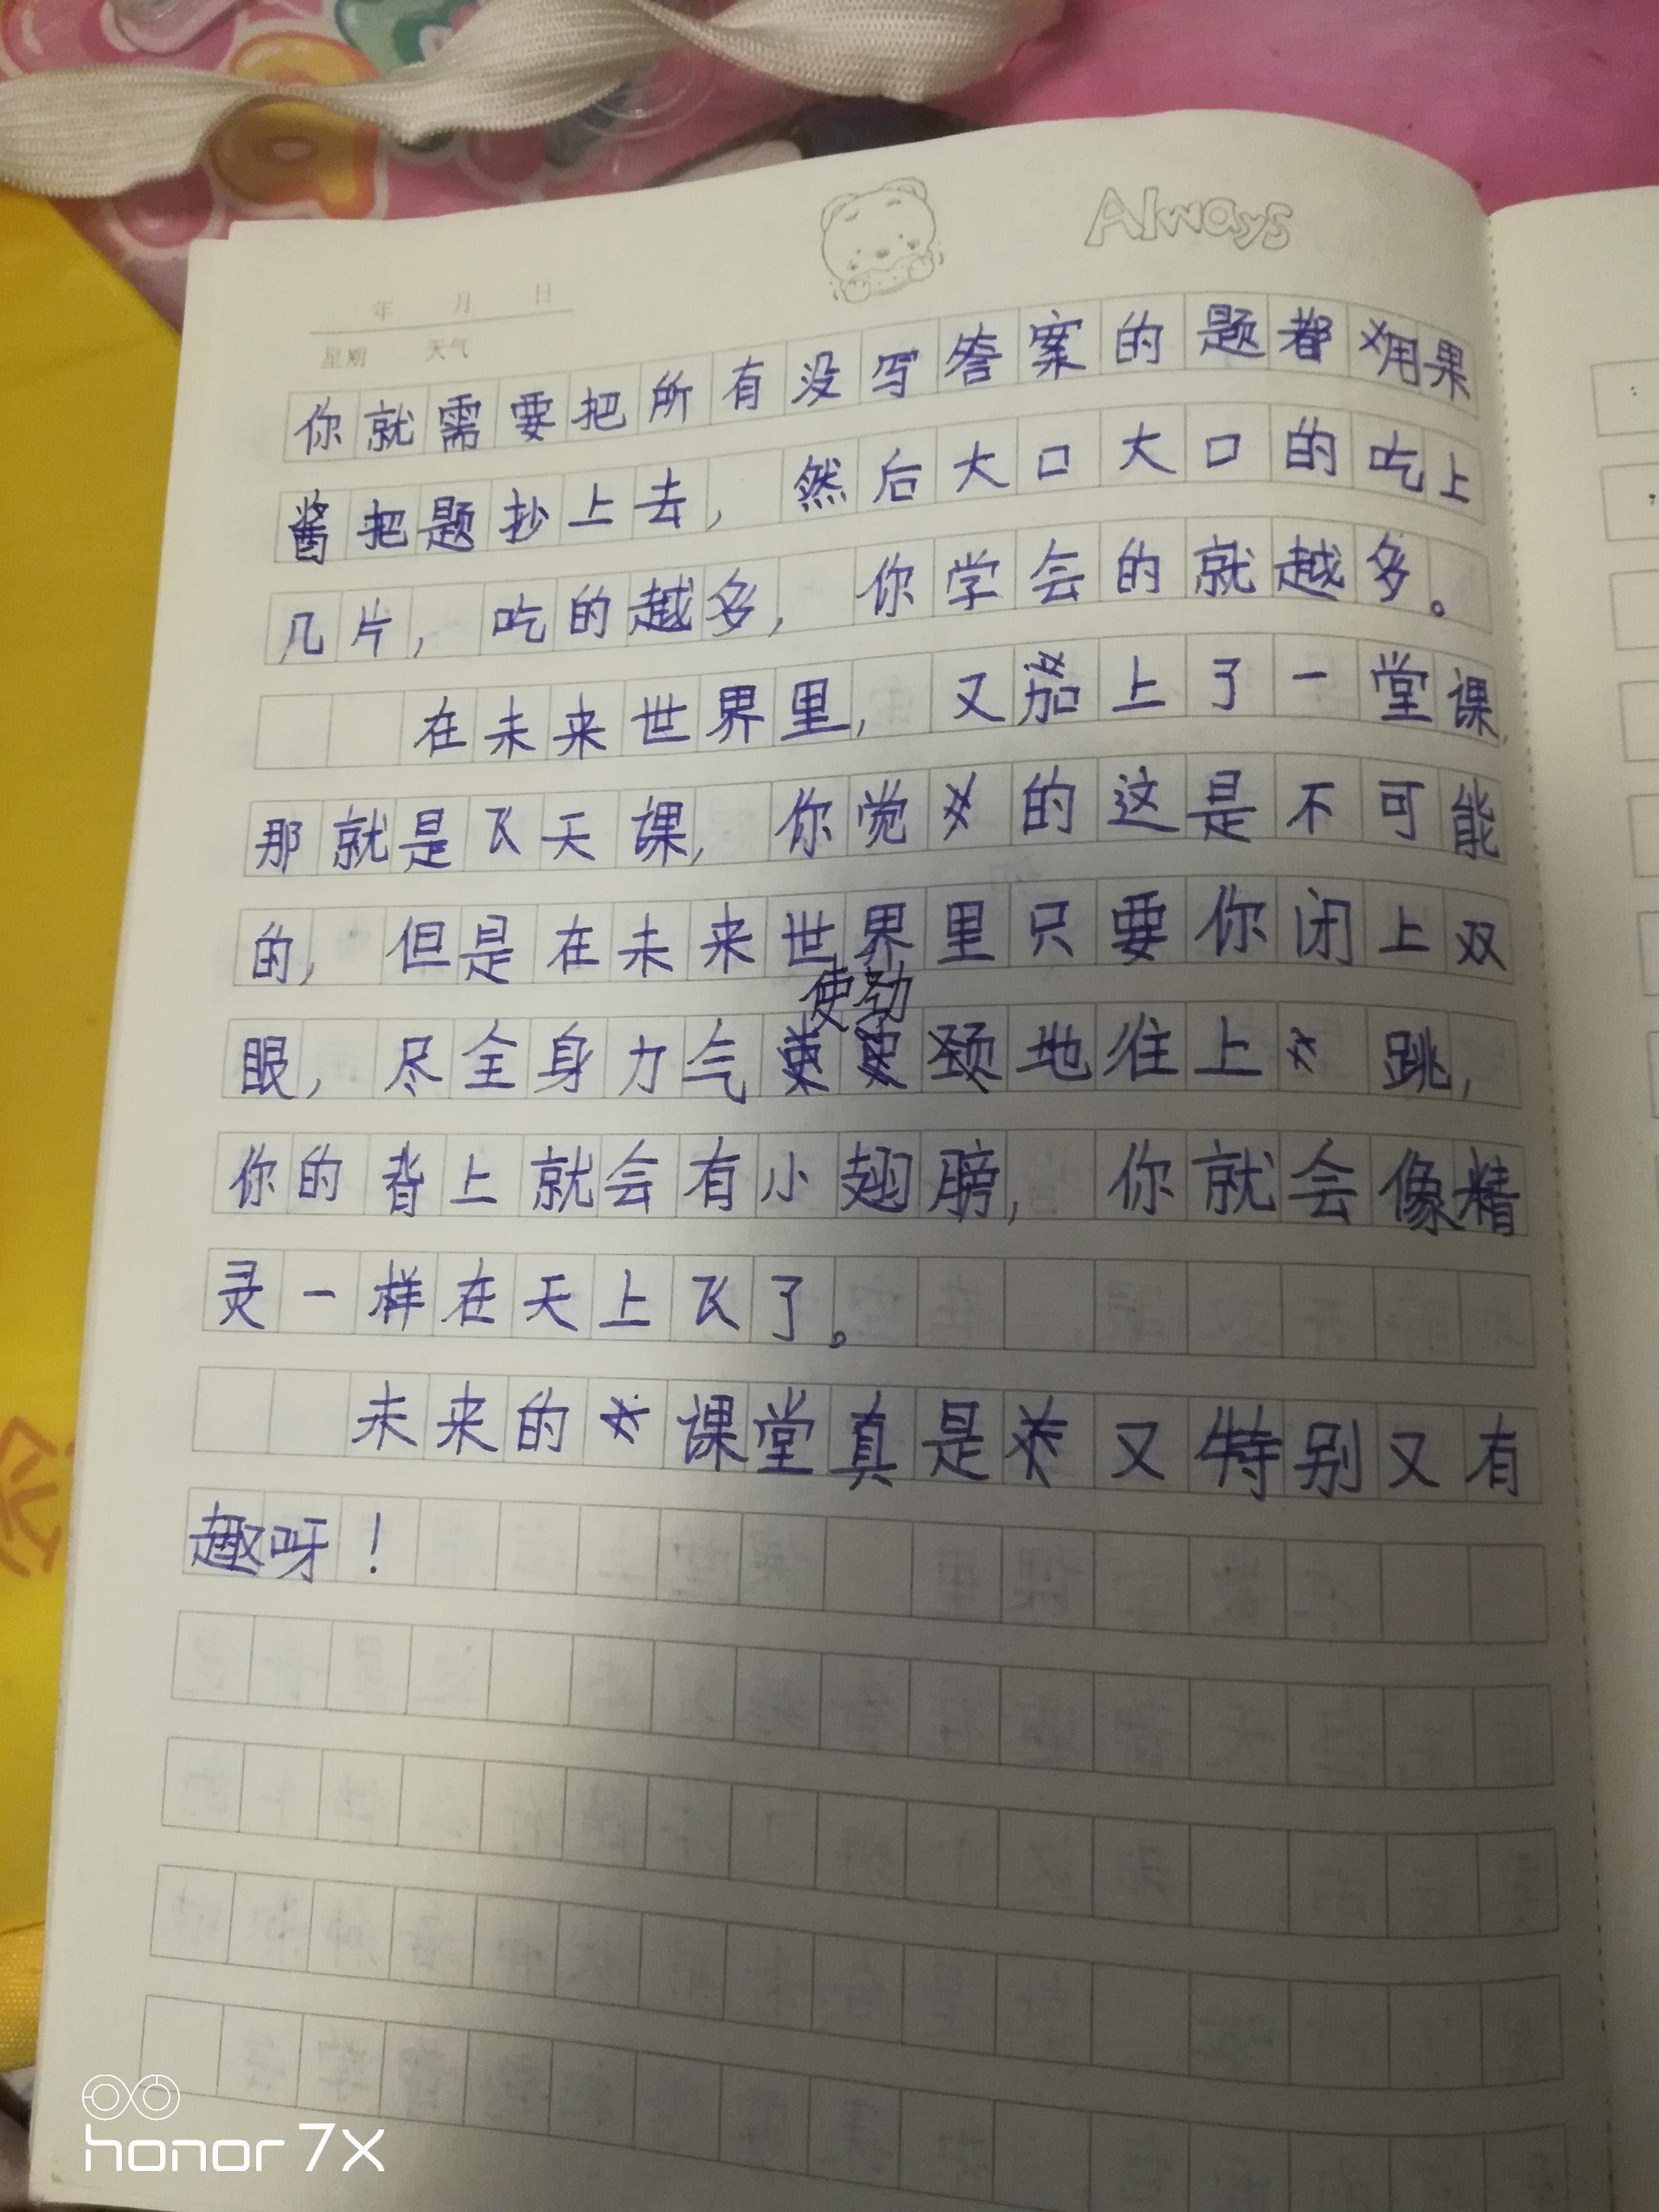 Always
年 月 日
星期 天气
你就需要把所有没写答案的题都用果
酱把题抄上去，然后大口大口的吃上
几片，吃的越多，你学会的就越多。
在未来世界里，又加上了一堂课，
那就是飞天课，你觉的这是不可能
的，但是在未来世界里只要你闭上双
使劲
眼，尽全身力气地往上跳，
你的背上就会有小翅膀，你就会像精
灵一样在天上飞了。
未来的课堂真是又特别又有
趣呀！
honor 7X